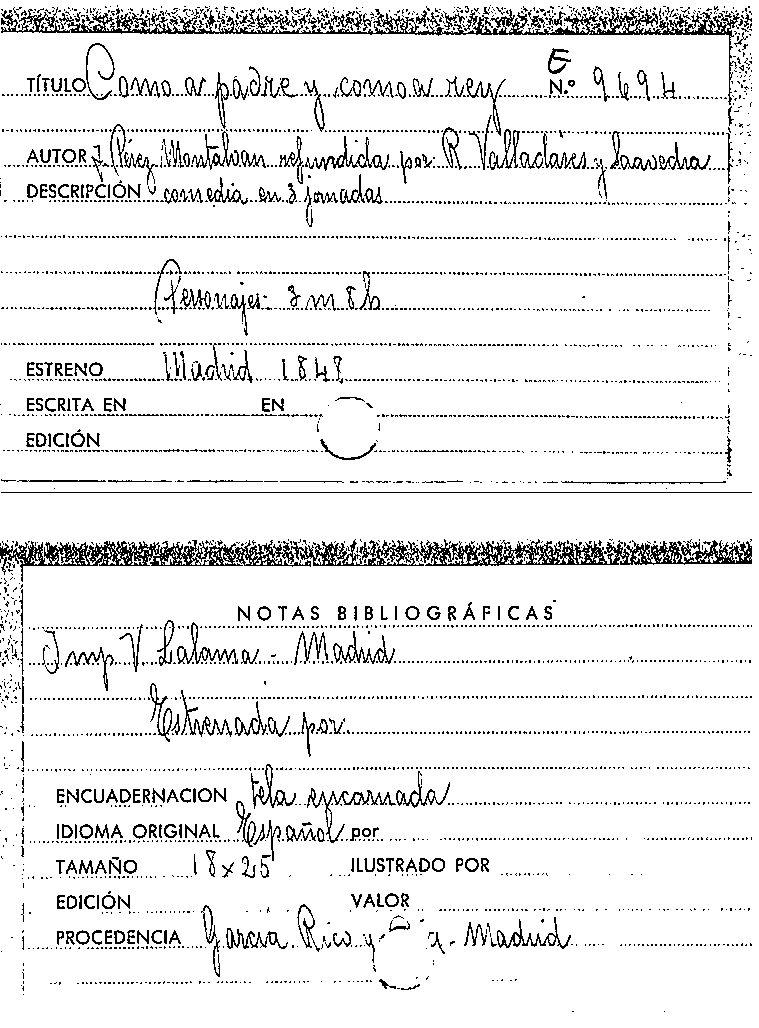 TÍTULO Como a padre y como a rey E N.º 9694
AUTOR J. Pérez Montalvan refundida por R. Valladares y Saavedra
DESCRIPCIÓN comedia en 3 jornadas
Personajes: 3 m 8 h
ESTRENO Madrid 1848
ESCRITA EN EN
EDICIÓN
NOTAS BIBLIOGRÁFICAS
Imp. V. Lalama - Madrid
Estrenada por
ENCUADERNACION tela encarnada
IDIOMA ORIGINAL Español por
TAMAÑO 18 x 25 ILUSTRADO POR
EDICIÓN VALOR
PROCEDENCIA García Rico y - Madrid